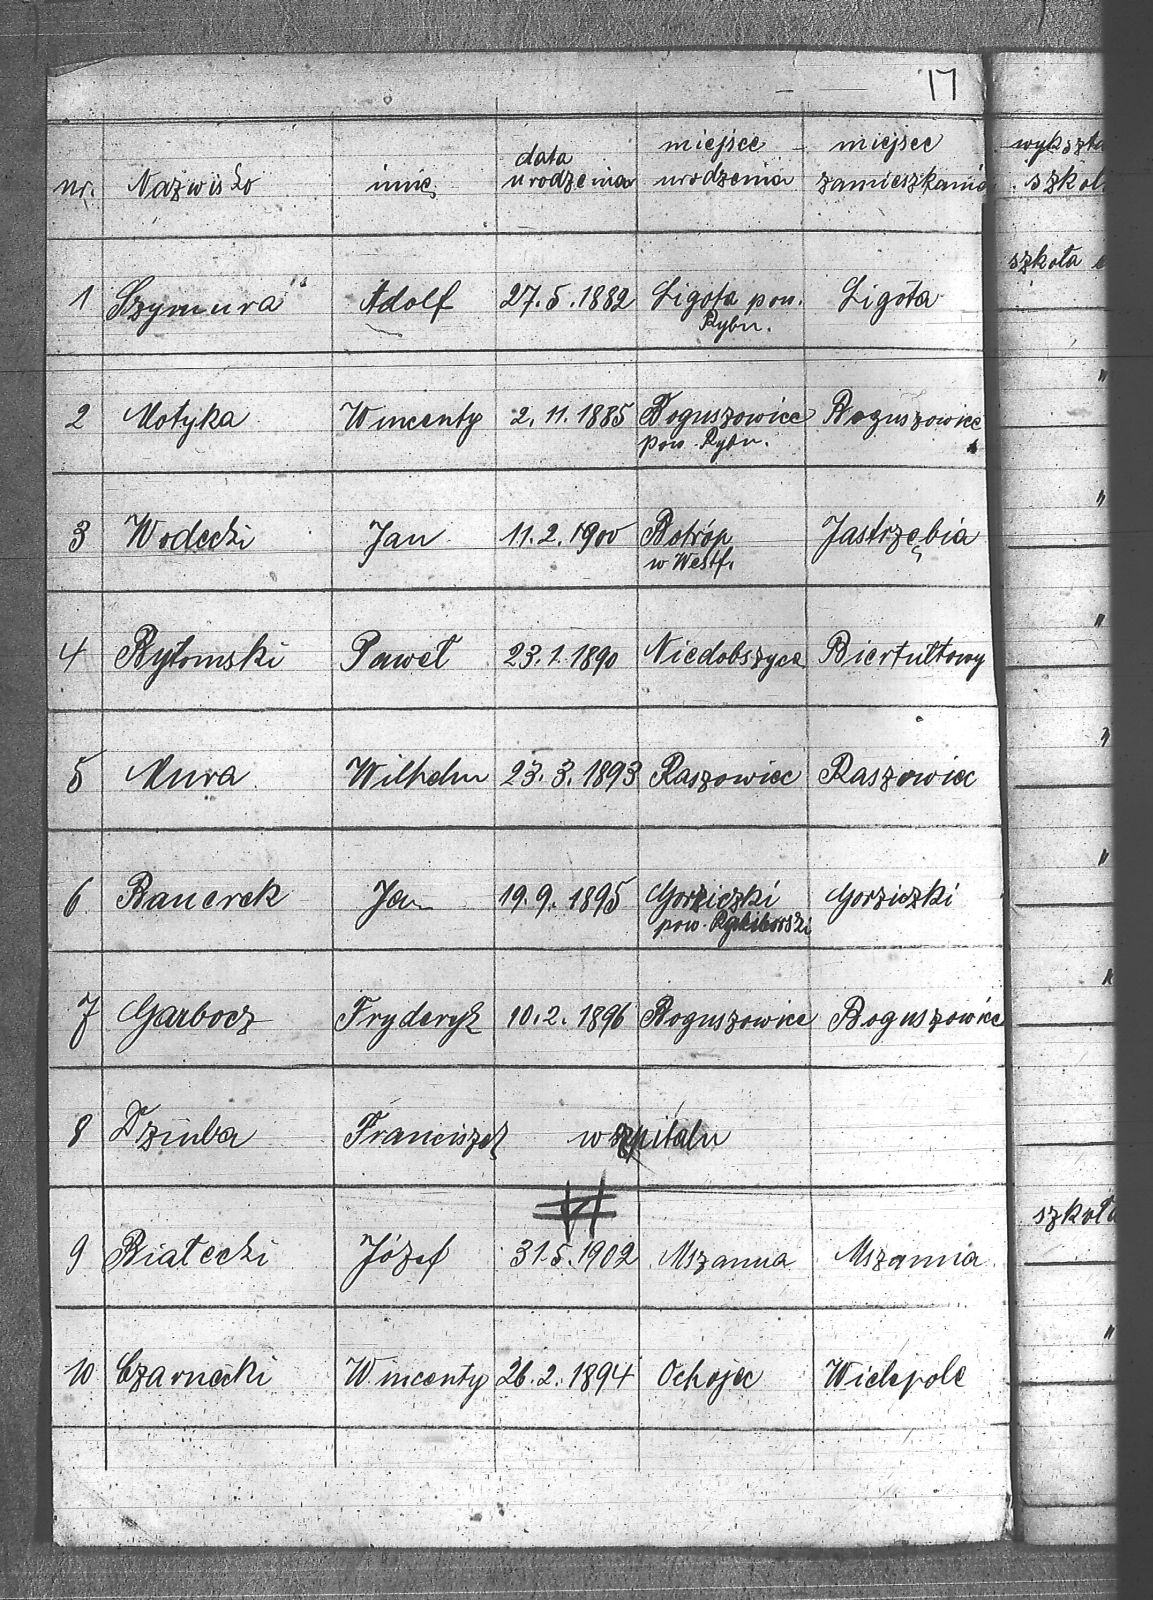 17
nr. Nazwisko imię data urodzenia miejsce urodzenia miejsce zamieszkania wykszta
szkol
szkoła
1 Szymura Adolf 27.5.1882 Ligota pow. Ligota
Rybn.
"
2 Motyka Wincenty 2.11.1885 Boguszowice Boguszowice
pow. Rybn.
"
3 Wodecki Jan 11.2.1900 Botróp Jastrzębia
w Westf.
"
4 Bytomski Paweł 23.1.1890 Niedobszyce Biertułtowy
"
5 Mura Wilhelm 23.3.1893 Raszowiec Raszowiec
"
6 Banerek Jan 19.9.1895 Gorziczki Gorziczki
pow.
"
7 Garbocz Fryderyk 10.2.1896 Boguszowice Boguszowice
8 Dziuba Franciszek w szpitalu
szkoła
9 Białecki Józef 31.5.1902 Mszanna Mszanna
"
10 Czarnecki Wincenty 26.2.1894 Ochojec Wielepole